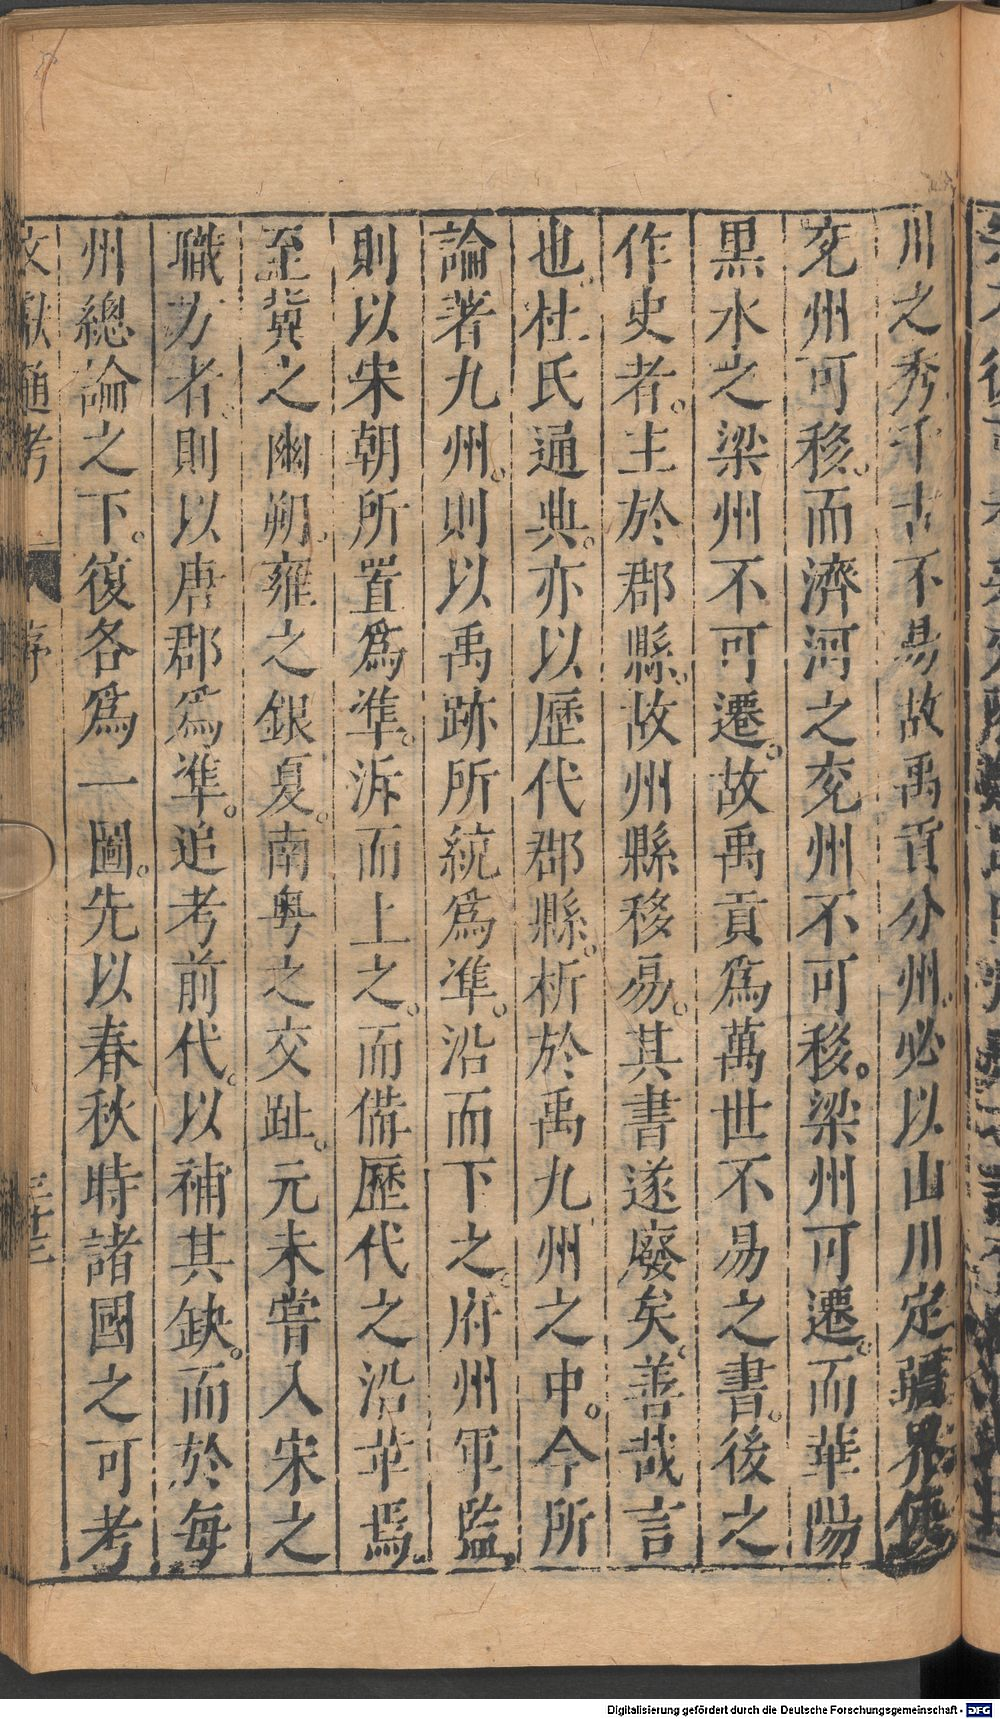 川之秀千古不易故禹貢分州。必以山川定疆界使
兗州可移。而濟河之兗州不可移。梁州可遷。而華陽
黒水之梁州不可遷。故禹貢爲萬世不易之書。後之
作史者。主於郡縣。故州縣移易。其書遂廢矣。善哉言
也。杜氏通典。亦以歷代郡縣。析於禹九州之中。今所
論著九州。則以禹跡所統爲準。沿而下之。府州軍監。
則以宋朝所置爲準。泝而上之。而備歷代之沿革焉。
至冀之幽朔。雍之銀夏。南粤之交趾。元未嘗入宋之
職方者。則以唐郡爲準。追考前代。以補其缺。而於每
州總論之下。復各爲一圖。先以春秋時諸國之可考
文獻通考 序 三十三
Digitalisierung gefördert durch die Deutsche Forschungsgemeinschaft - DFG